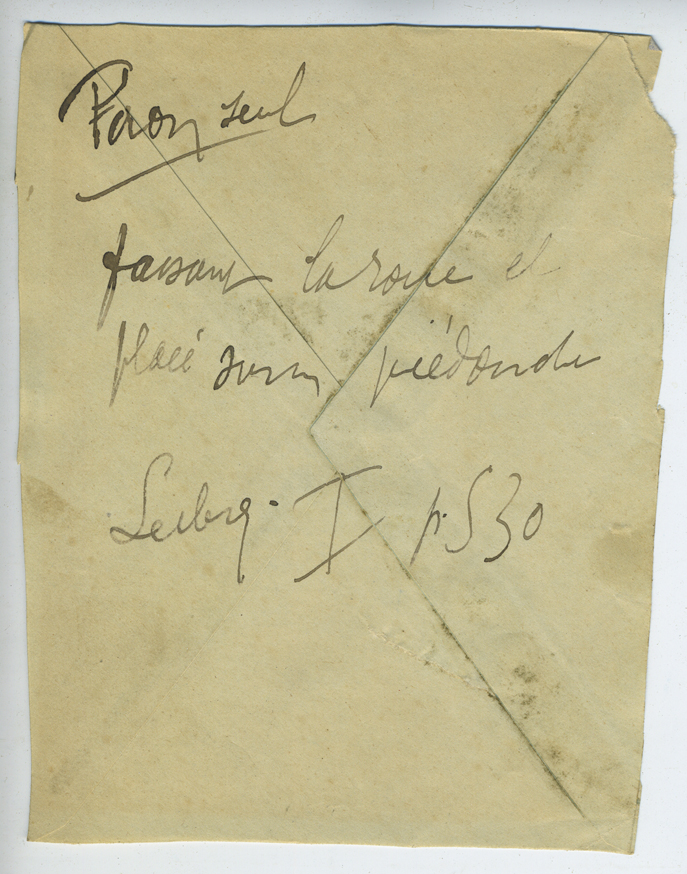 Paon seul
faisant la roue et
placé sur un piédouche
Leclercq. I p. 530